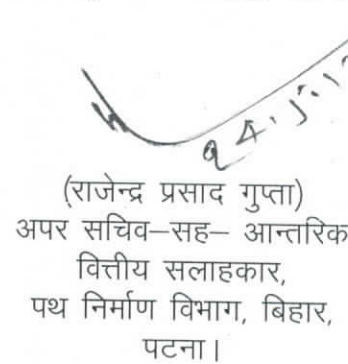 (राजेन्द्र प्रसाद गुप्ता)
अपर सचिव–सह– आन्तरिक
वित्तीय सलाहकार,
पथ निर्माण विभाग, बिहार,
पटना।